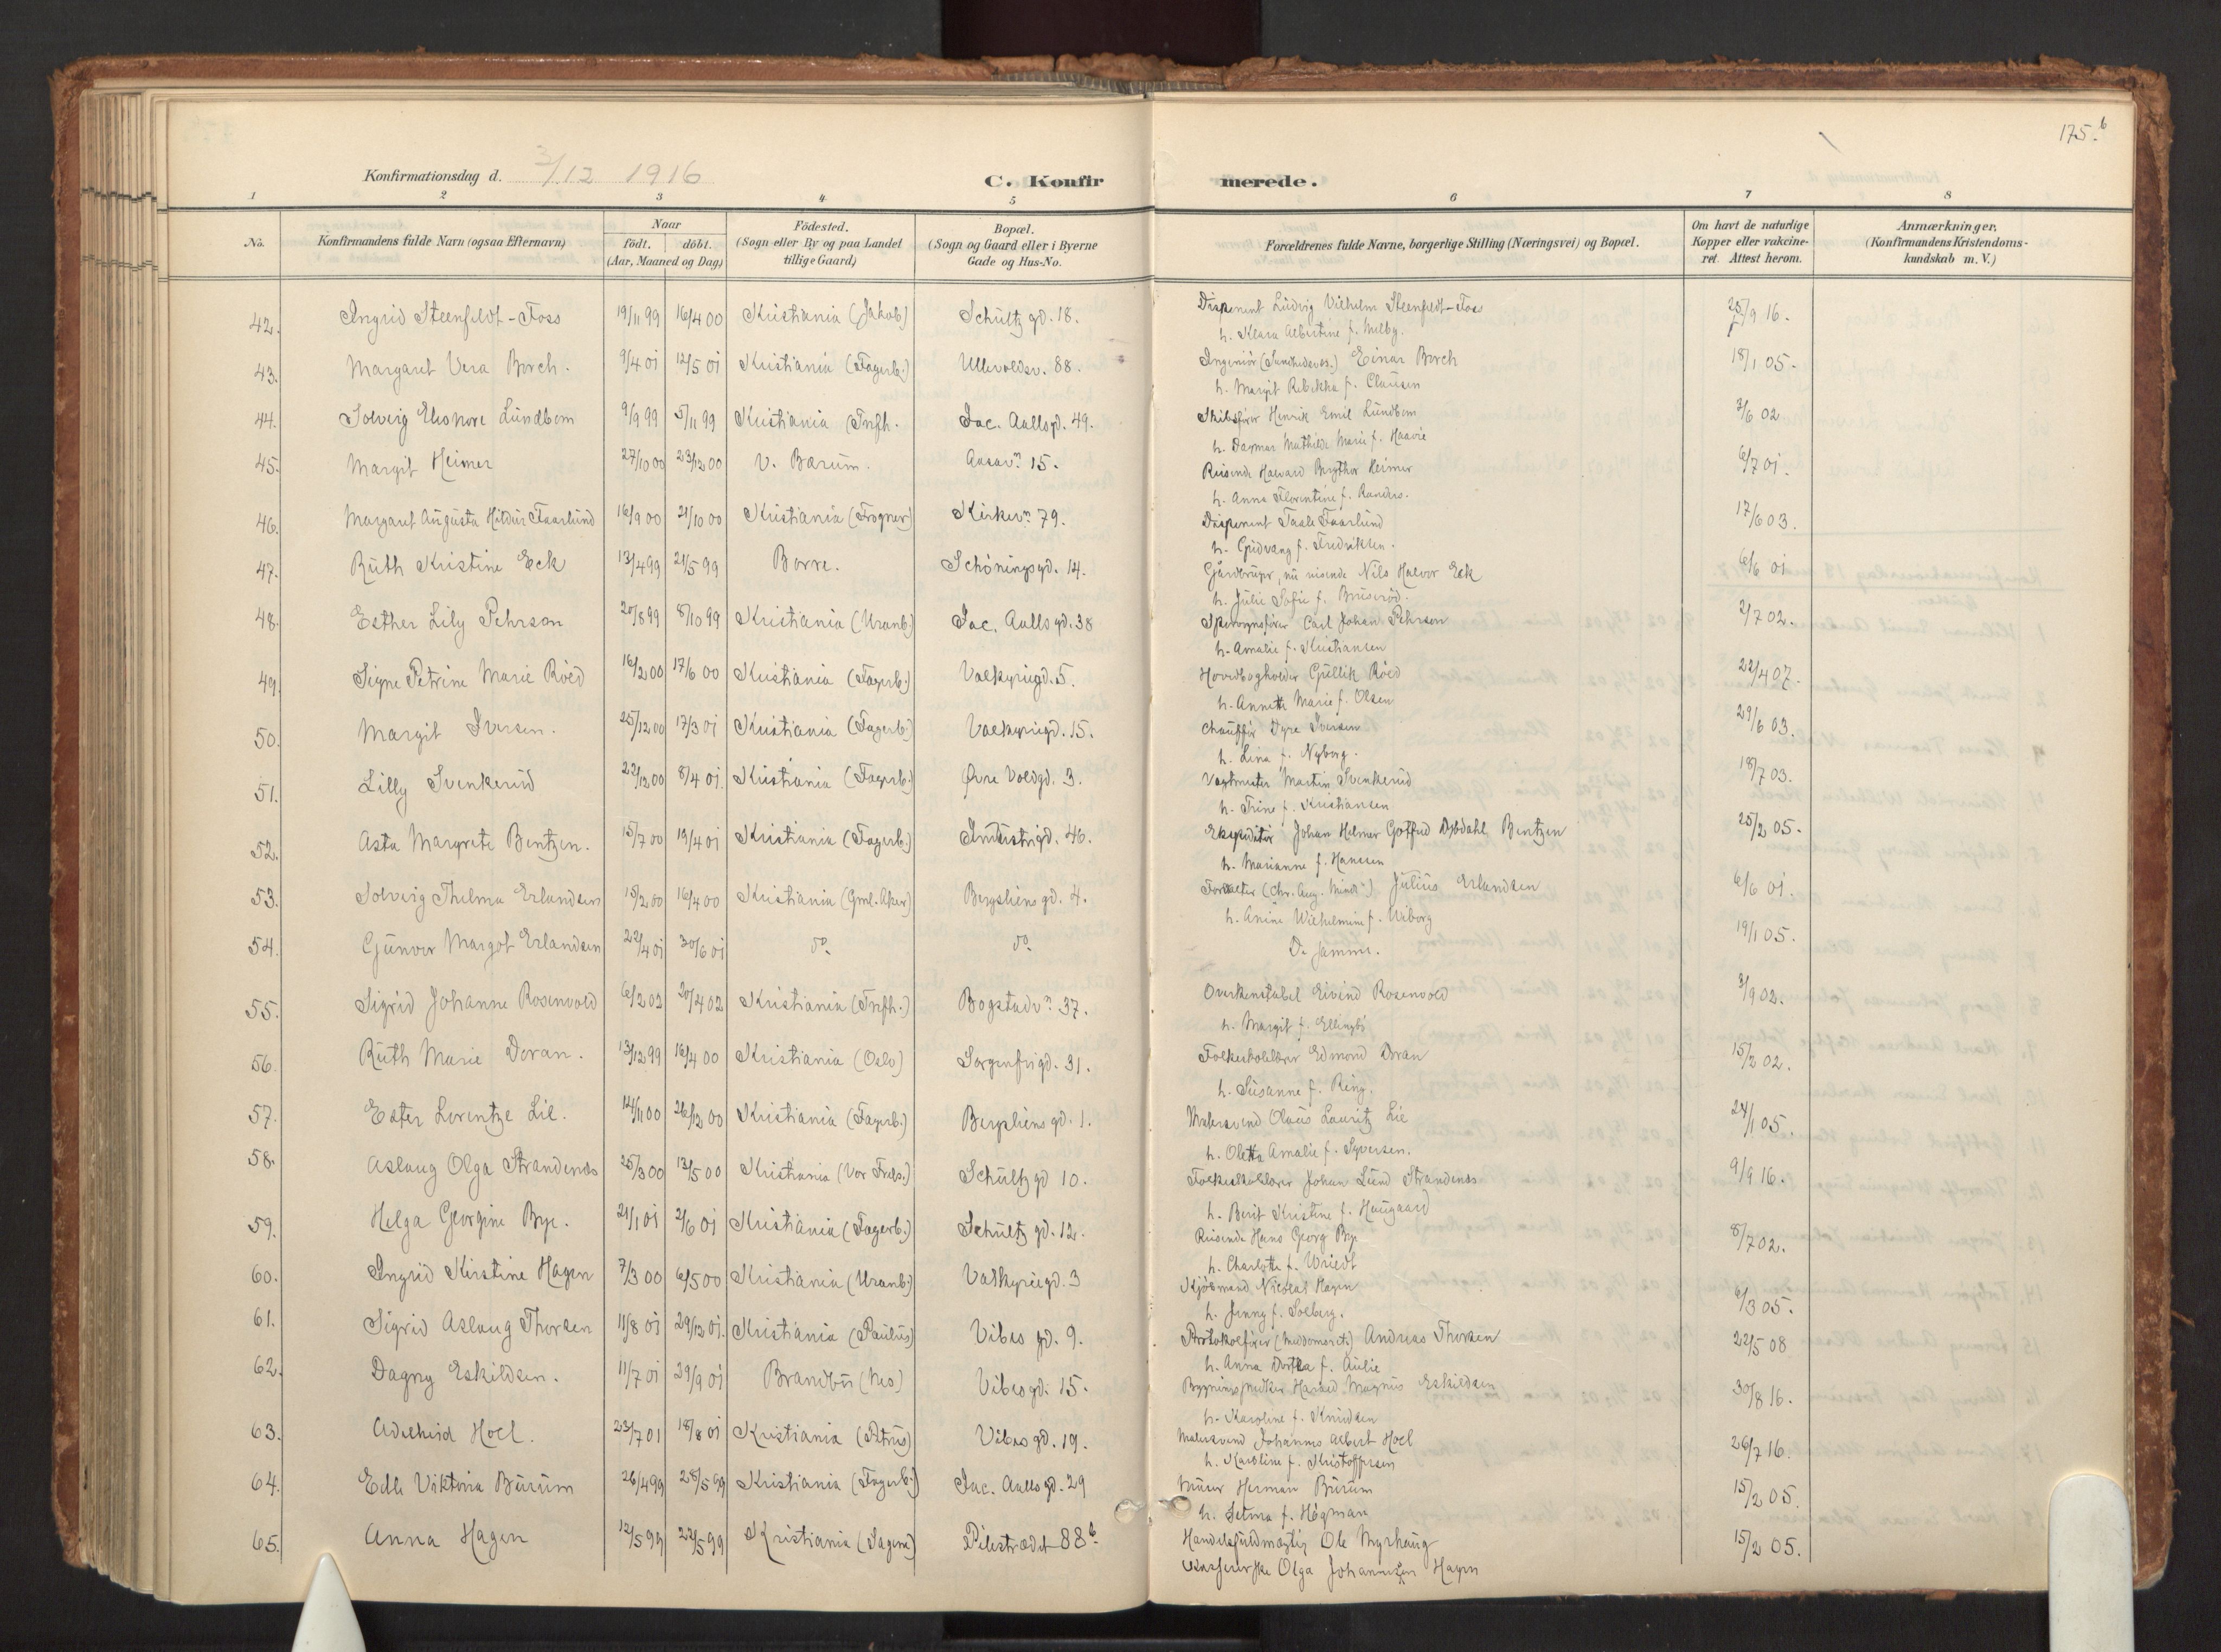 175.b
Konfirmationsdag d. 3/12 1916 C. Konfirmerede.
1 2 3 4 5 6 7 8
No. Konfirmandens fulde Navn (ogsaa Efternavn) Naar födt. döbt. (Aar, Maaned og Dag) Födested. (Sogn eller By og paa Landet tillige Gaard) Bopæl. (Sogn og Gaard eller i Byerne Gade og Hus-No. Forældrenes fulde Navne, borgerlige Stilling (Næringsvei) og Bopæl. Om havt de naturlige Kopper eller vakcineret. Attest herom. Anmærkninger. (Konfirmandens Kristendomskundskab m. V.)
42. Ingrid Steenfeldt-Foss 19/11 99 16/4 00 Kristiania (Jakob) Schültz gd. 18. Disponent Ludvig Vilhelm Steenfeldt-Foss 25/9 16.
h. Klara Albertine f. Melby.
43. Margaret Vera Borch. 9/4 01 12/5 01 Kristiania (Fagerb.) Ullevoldsv. 88. Ingeniör (Sundhedsv.) Einar Borch 18/1 05.
h. Margit Rebekka f. Clausen
44. Solveig Eleonore Lundbom 9/9 99 5/11 99 Kristiania (Trefh. Jac. Aallsgd. 49. Skibsförer Henrik Emil Lundbom 3/6 02
h. Dagmar Mathilde Marie f. Haavie
45. Margit Heimer 27/10 00 23/12 00 V. Bærum. Aasav.n 15. Reisende Halvard Heimer 6/7 01.
h. Anna Florentine f. Randers.
46. Margaret Augusta Hildur Faarlund 16/9 00 21/10 00 Kristiania (Frogner) Kirkev.n 79. Disponent Taale Faarlund 17/6 03.
h. Gudvang f. Fredriksen.
47. Ruth Kristine Eck 13/4 99 21/5 99 Borre. Schöningsgd. 14. Gårdbruger, nu reisende Nils Halvor Eck 6/6 01
h. Julie Sofie f. Bruseröd.
48. Esther Lily Pehrson 20/8 99 8/10 99 Kristiania (Uranb.) Jac. Aallsgd. 38 Carl Johan Pehrson 2/7 02.
h. Amalie f. Kristiansen
49. Signe Petrine Marie Röed 16/2 00 17/6 00 Kristiania (Fagerb.) Valkyriegd. 5. Hovedbogholder Gullik Röed 22/4 07.
h. Annette Marie f. Olsen
50. Margit Iversen. 25/12 00 17/3 01 Kristiania (Fagerb.) Valkyriegd. 15. Chaufför Dyre Iversen 29/6 03.
h. Lina f. Nyborg.
51. Lilly Svenkerud 22/12 00 8/4 01. Kristiania (Fagerb.) Øvre Voldgd. 3. Vagtmester Martin Svenkerud 18/7 03.
h. Trine f. Kristiansen
52. Asta Margrete Bentzen. 15/7 00 19/4 01 Kristiania (Fagerb.) Industrigd. 46. Ekspeditör Johan Helmer Gotfred Dybdahl Bentzen 25/2 05.
h. Marianne f. Hansen
53. Solveig Thelma Erlandsen 15/2 00 16/4 00 Kristiania (Gml. Aker) Bergsliens gd. 4. Forvalter (Chr. Aug. Minde) Julius Erlandsen 6/6 01.
h. Anine Wilhelmine f. Wiborg
54. Gunvor Margot Erlandsen 22/4 01 30/6 01 do. do. De samme. 19/1 05.
55. Sigrid Johanne Rosenvold 6/2 02 20/4 02 Kristiania (Trefh.) Bogstadv.n 37. Overkonstabel Eivind Rosenvold 3/9 02.
h. Margit f. Ellingbö
56. Ruth Marie Doran. 13/12 99 16/4 00 Kristiania (Oslo) Sorgenfrigd. 31. Folkeskolelærer Edmond Doran 15/2 02.
h. Susanne f. Ring.
57. Ester Lorentze Lie. 14/11 00 26/12 00 Kristiania (Fagerb.) Bergsliens gd. 1. Malersvend Olaus Lauritz Lie 24/1 05.
h. Olette Amalie f. Syversen.
58. Aslaug Olga Strandenæs 25/3 00 13/5 00 Kristiania (Vor Frels.) Schültz gd 10. Folkeskolelærer Johan Lund Strandenæs 9/9 16.
h. Berit Kristine f. Haugaard
59. Helga Georgine Bye. 21/1 01 2/6 01 Kristiania (Fagerb.) Schültz gd. 12. Reisende Hans Georg Bye 8/7 02.
h. Charlotte f. Wriedt
60. Ingrid Kirstine Hagen 7/3 00 6/5 00 Kristiania (Uranb.) Valkyriegd. 3 Kjöbmand Nicolai Hagen 6/3 05.
h. Jenny f. Solberg.
61. Sigrid Aslaug Thorsen 11/8 01 29/12 01. Kristiania (Paulus) Vibes gd. 9. Protokolförer (Meddomsrets.) Andreas Thorsen 22/5 08
h. Anna Dorthea f. Aulie
62. Dagny Eskildsen. 11/7 01 29/9 01 Brandbu (Nes) Vibesgd. 15. Harald Magnus Eskildsen 30/8 16.
h. Karoline f. Knudsen
63. Adelheid Hoel. 23/7 01 18/8 01 Kristiania (Petrus) Vibes gd. 19. Malersvend Johannes Albert Hoel 26/7 16.
h. Karoline f. Kristoffersen
64. Edle Viktoria Burum 26/4 99 28/5 99 Kristiania (Fagerb.) Jac. Aalls gd. 29 Murer Herman Burum 15/2 05.
h. Selma f. Högman
65. Anna Hagen 12/5 99 22/5 99 Kristiania (Sagene) Pilestrædet 88b. Handelsfuldmægtig Ole Myrhaug 15/2 05.
Olga Johannesen Hagen